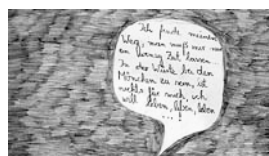 Ich finde meinen
Weg, man muß mir nur
ein wenig Zeit lassen.
In der Wüste bei den
Mönchen zu sein, ist
nichts für mich, ich
will leben, leben, leben
...!